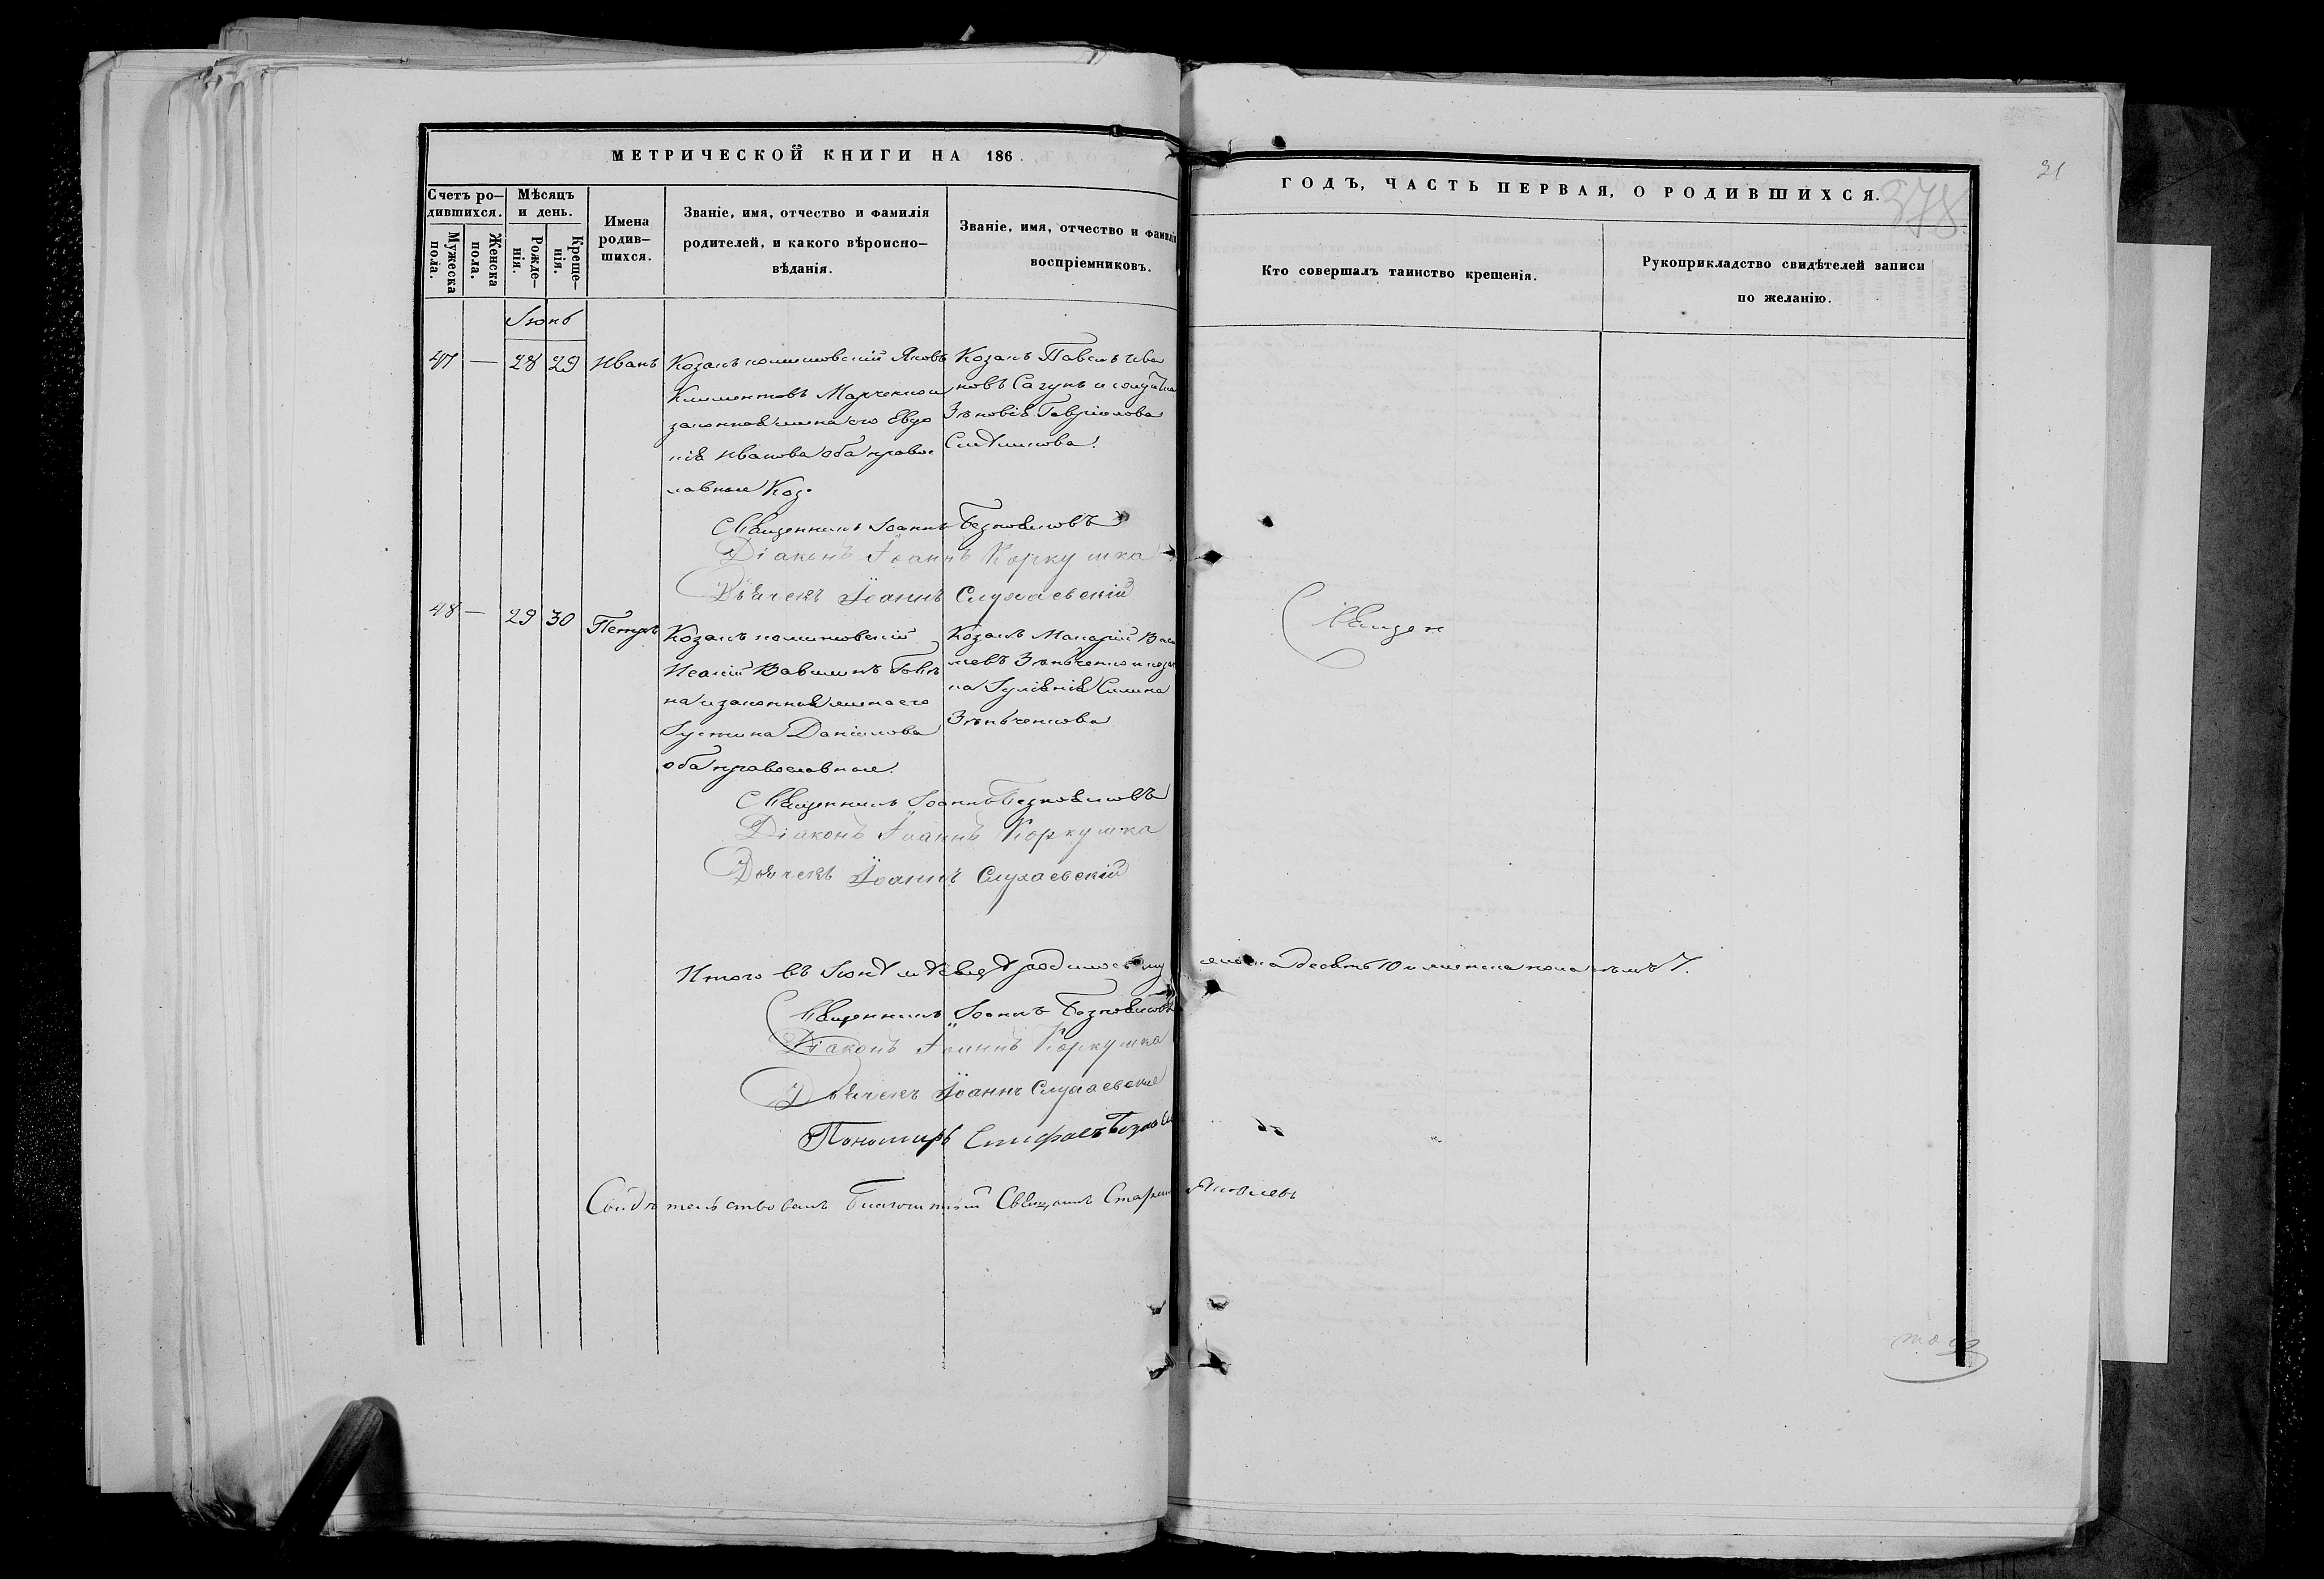 МЕТРИЧЕСКОЙ КНИГИ НА 186 .
ГОДЪ, ЧАСТЬ ПЕРВАЯ, О РОДИВШИХСЯ.
378
Счетъ ро-
дившихся.
Мужеска
пола.
Женска
пола.
Мѣсяцъ
и день.
Рожде-
нія.
Креще-
нія.
Имена
родив-
шихся.
Званіе, имя, отчество и фамилія
родителей, и какого вѣроиспо-
вѣданія.
Званіе, имя, отчество и фамилія
воспріемниковъ.
Кто совершалъ таинство крещенія.
Рукоприкладство свидѣтелей записи
по желанію.
Іюнь
47 — 28 29 Иванъ
Козакъ Яковъ
Климентовъ Марченко и
законная жена его Евдо
кія Иванова оба право
славные Коз.
Козакъ Павелъ Ива
новъ Сагунъ и
Зѣновія Гавріилова
Священникъ Іоаннъ
Діаконъ Іоаннъ Коркушка
Дьячекъ Іоаннъ Слухаевскій
48 — 29 30 Петръ
Козакъ
Вавилинъ
на и законная жена его
Іустина Даніилова
оба православные.
Козакъ Макарій Васи
льевъ Зѣнченко и коза
ка Іуліанія
Зѣнченкова
Священ
Священникъ Іоаннъ
Діаконъ Іоаннъ Коркушка
Дьячекъ Іоаннъ Слухаевскій
Итого въ Іюнѣ мѣсяцѣ родилось му десять 10 и женска пола семь 7.
Священникъ Іоаннъ
Діаконъ Іоаннъ Коркушка
Дьячекъ Іоаннъ Слухаевскій
Пономарь
Свидѣтельствовалъ Благочинный Священникъ